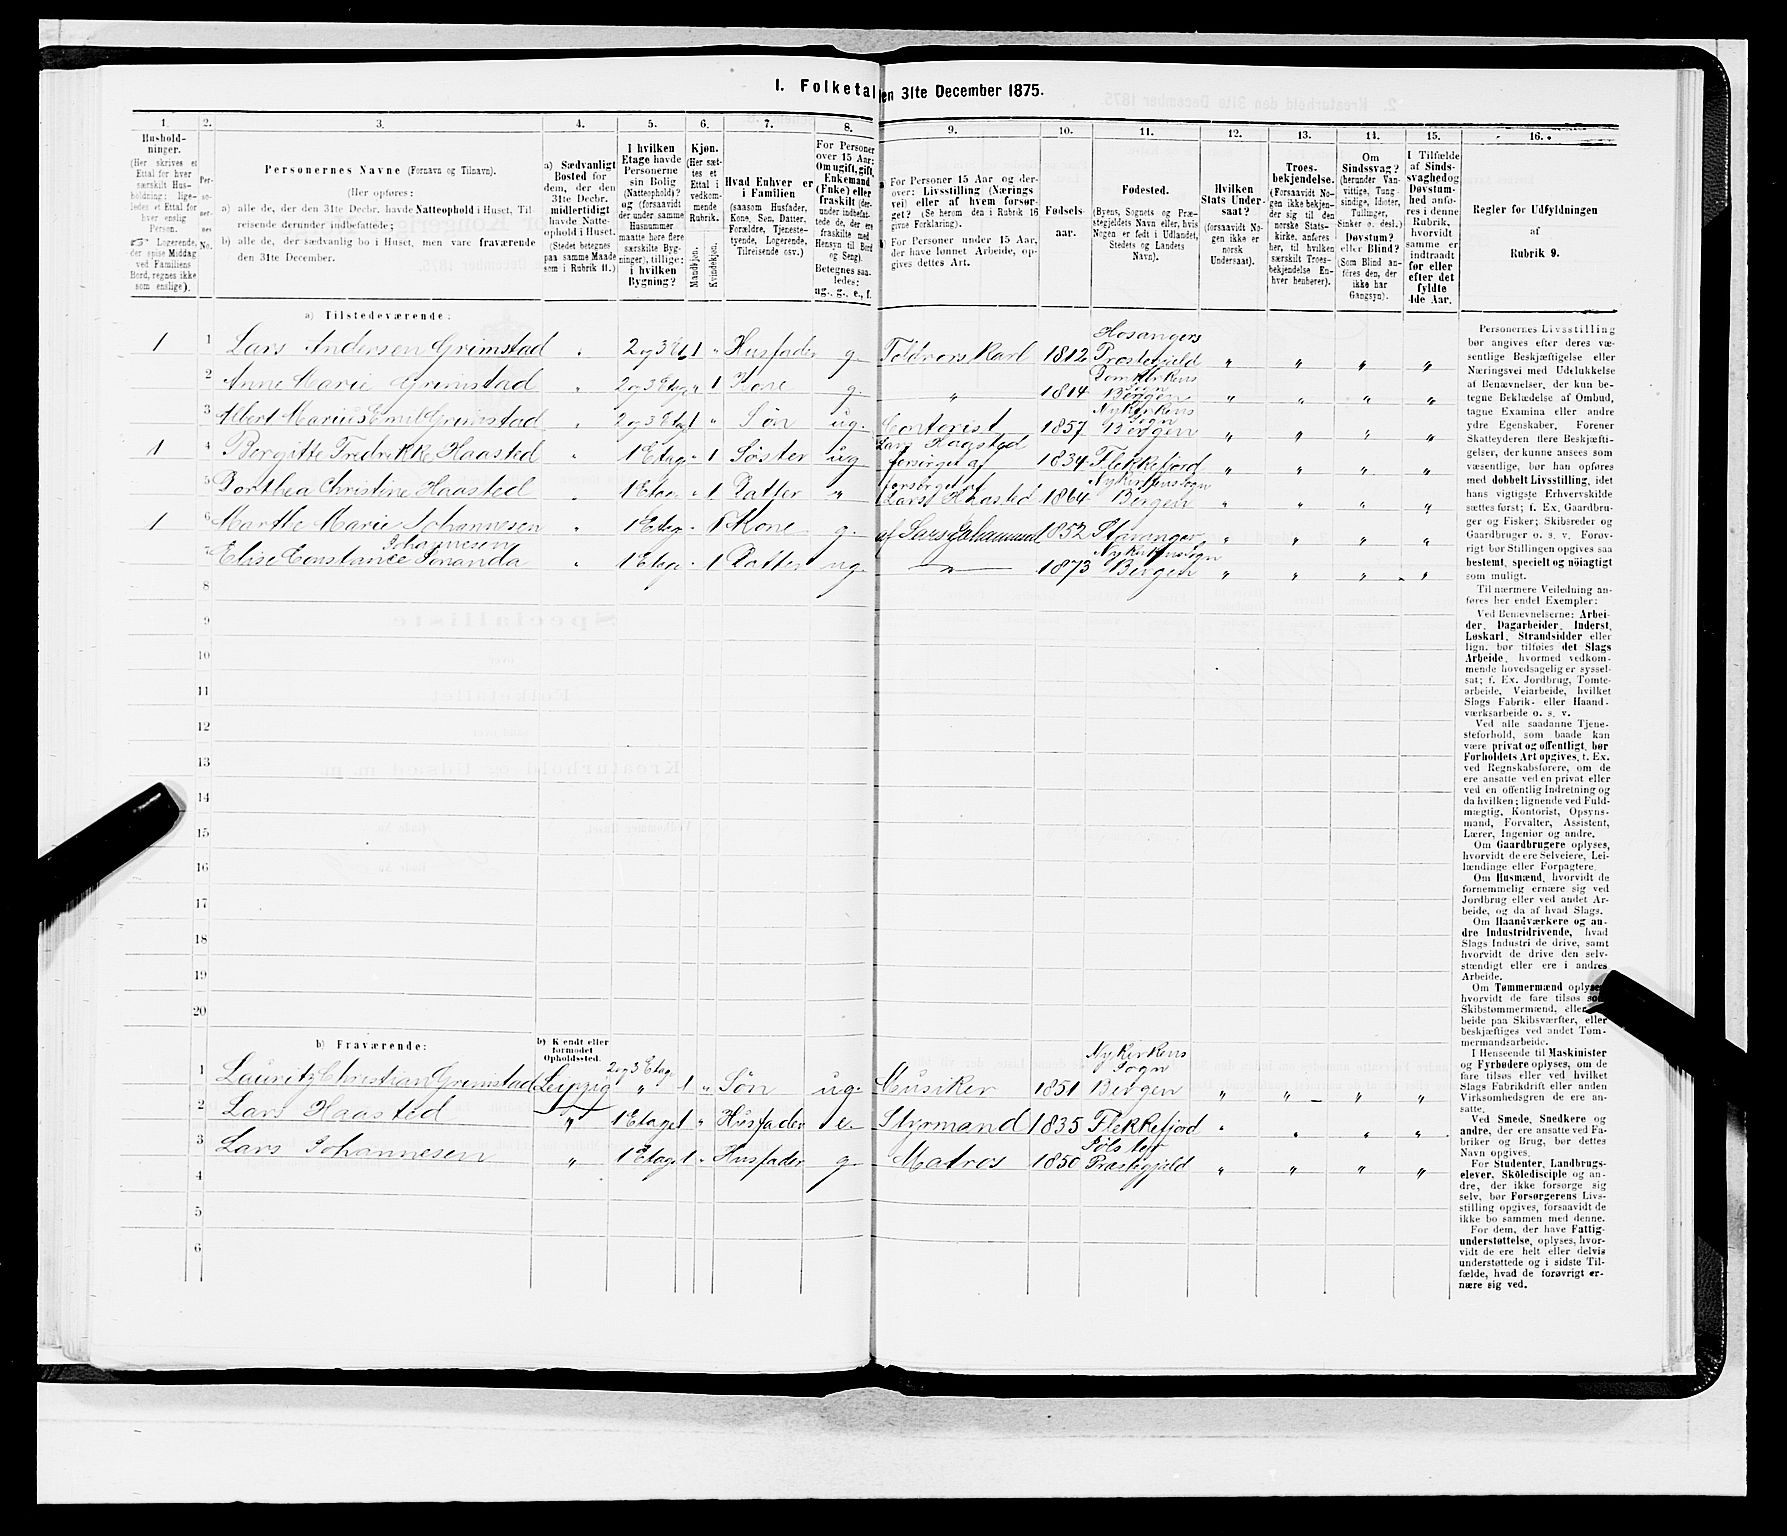 1. Folketal den 31te December 1875.
1. 2. 3. 4. 5. 6. 7. 8. 9. 10. 11. 12. 13. 14. 15. 16.
Hushold-
ninger.
(Her skrives et
Ettal for hver
særskilt Hus-
holdning; lige-
ledes et Ettal for
hver enslig
Person.
☞ Logerende,
der spise Middag
ved Familiens
Bord, regnes ikke
som enslige).
Per-
so-
ner-
nes
No.
Personernes Navne (Fornavn og Tilnavn).
(Her opføres:
a) alle de, der den 31te Decbr. havde Natteophold i Huset, Til-
reisende derunder indbefattede;
b) alle de, der sædvanlig bo i Huset, men vare fraværende
den 31te December.
a) Sædvanligt
Bosted for
dem, der den
31te Decbr.
midlertidigt
havde Natte-
ophold i Huset.
(Stedet betegnes
paa samme Maade
som i Rubrik 11.)
I hvilken
Etage havde
Personerne
sin Bolig
(Natteophold)?
og (forsaavidt
der under samme
Husnummer
maatte høre flere
særskilte Byg-
ninger), tillige:
i hvilken
Bygning?
Kjøn.
(Her sæt-
tes et
Ettal i
vedkom-
mende
Rubrik.
Mandkjøn.
Kvindekjøn.
Hvad Enhver er
i Familien
(saasom Husfader,
Kone, Søn, Datter,
Forældre, Tjeneste-
tyende, Logerende,
Tilreisende osv.)
For Personer
over 15 Aar:
Om ugift, gift,
Enkemand
(Enke) eller
fraskilt (der-
under indbefat-
tede de, der ere
fraskilte med
Hensyn til Bord
og Seng).
Betegnes saa-
ledes:
ug., g., e., f.
For Personer 15 Aar og der-
over: Livsstilling (Nærings-
vei) eller af hvem forsør-
get? (Se herom den i Rubrik 16
givne Forklaring).
For Personer under 15 Aar,
der have lønnet Arbeide, op-
gives dettes Art.
Fødsels
aar.
Fødested.
(Byens, Sognets og Præ-
stegjeldets Navn eller, hvis
Nogen er født i Udlandet,
Stedets og Landets
Navn).
Hvilken
Stats Under-
saat?
(forsaavidt No-
gen ikke er
norsk
Undersaat).
Troes-
bekjendelse.
(Forsaavidt No-
gen ikke bekjen-
der sig til den
norske Stats-
kirke, anføres
her, til hvilken
særskilt Troes-
bekjendelse En-
hver henhører).
Om
Sindssvag?
(herunder Van-
vittige, Tung-
sindige, Idioter,
Tullinger,
Sinker o. desl.)
Døvstum?
eller Blind?
(Som Blind an-
føres den, der
ikke har
Gangsyn).
I Tilfælde
af Sinds-
svaghed og
Døvstum-
hed anfø-
res i denne
Rubrik,
hvorvidt
samme er
indtraadt
før eller
efter det
fyldte
4de Aar.
Regler for Udfyldningen
af
Rubrik 9.
a) Tilstedeværende:
1 1 Lars Andersen Grimstad " 2 og 3 Et 1 " Husfader g. Toldvors Karl 1812 Hosangers Præstegjeld " " " "
2 Anne Marie Grimstad " 2 og 3 Etag " 1 Kone g " 1814 Domkirkens Sogn Bergen " " " "
3 Albert Marius Emil Grimstad " 2 og 3 Etag 1 " Søn ug. Contorist 1857 Nykirkens Sogn Bergen " " " "
1 4 Bergitte Fredrikke Haasted " 1 Etag " 1 Søster ug forsørget af Lars Haagsted 1834 Flekkefjord " " " "
5 Dorthea Christine Haasted " 1 Etag " 1 Datter " forsørget af Lars Haasted 1864 Nykirkens Sogn Bergen " " " "
1 6 Marthe Marie Johannesen " 1 Etag " 1 Kone g. af Lars Johannesen 1852 Stavanger " " " "
7 Elise Constance Johannesen " 1 Etag " 1 Datter ug. " 1873 Nykirkens Sogn Bergen " " " "
8
9
10
11
12
13
14
15
16
17
18
19
20
b) Fraværende:
b) Kjendt eller
formodet
Opholdssted.
1 Lauritz Christian Grimstad Leipzig 2 og 3 Etag " 1 " Søn ug. Musiker 1851 Nykirkens Sogn Bergen " " " "
2 Lars Haasted " 1 Etage 1 " Husfader e. Styrmand 1835 Flekkefjord " " " "
3 Lars Johannesen " 1 Etage 1 " Husfader g Matros 1850 Præstegjeld " " " "
4
5
6
Personernes Livsstilling
bør angives efter deres væ-
sentlige Beskjæftigelse eller
Næringsvei med Udelukkelse
af Benævnelser, der kun be-
tegne Beklædelse af Ombud,
tagne Examina eller andre
ydre Egenskaber. Forener
Skatteyderen flere Beskjæfti-
gelser, der kunne ansees som
væsentlige, bør han opføres
med dobbelt Livsstilling, idet
hans vigtigste Erhvervskilde
sættes først; f. Ex. Gaardbru-
ger og Fisker; Skibsreder og
Gaardbruger o. s. v. Forøv-
rigt bør Stillingen opgives saa
bestemt, specielt og nøiagtig
som muligt.
Til nærmere Veiledning an-
føres her endel Exempler:
Ved Benævnelserne: Arbei-
der, Dagarbeider, Inderst,
Løskarl, Strandsidder eller
lign. bør tilføies det Slags
Arbeide, hvormed vedkom-
mende hovedsagelig er syssel-
sat; f. Ex. Jordbrug, Tomte-
arbeide, Veiarbeide, hvilket
Slags Fabrik- eller Haand-
værksarbeide o. s. v.
Ved alle saadanne Tjene-
steforhold, som baade kan
være privat og offentligt, bør
Forholdets Art opgives, t. Ex.
ved Regnskabsførere, om de
ere ansatte ved en privat eller
ved en offentlig Indretning og
da hvilken; lignende ved Fuld-
mægtig, Kontorist, Opsyns-
mand, Forvalter, Assistent,
Lærer, Ingeniør og andre.
Om Gaardbrugere oplyses,
hvorvidt de ere Selveiere, Lei-
lændinge eller Forpagtere.
Om Husmænd, hvorvidt de
fornemmelig ernære sig ved
Jordbrug eller ved andet Ar-
beide, og da af hvad Slags.
Om Haandværkere og an-
dre Industridrivende, hvad
Slags Industri de drive, samt
hvorvidt de drive den selv-
stændigt eller ere i andres
Arbeide.
Om Tømmermænd oplyses
hvorvidt de fare tilsøs som
Skibstømmermænd, eller ar-
beide paa Skibsværfter, eller
beskjæftiges ved andet Tøm-
mermandsarbeide.
I Henseende til Maskinister
og Fyrbødere oplyses, om de
fare tilsøs eller ved hvilket
Slags Fabrikdrift eller anden
Virksomhedsgren de ere an-
satte.
Ved Smede, Snedkere og
andre, der ere ansatte ved Fa-
briker og Brug, bør dettes
Navn opgives.
For Studenter, Landbrugs-
elever, Skoledisciple og an-
dre, der ikke forsørge sig
selv, bør Forsørgerens Livs-
stilling opgives, forsaavidt de
ikke bo sammen med denne.
For dem, der have Fattig-
understøttelse, oplyses, hvor-
vidt de ere helt eller delvis
understøttede og i sidste Til-
fælde, hvad de forøvrigt er-
nære sig ved.